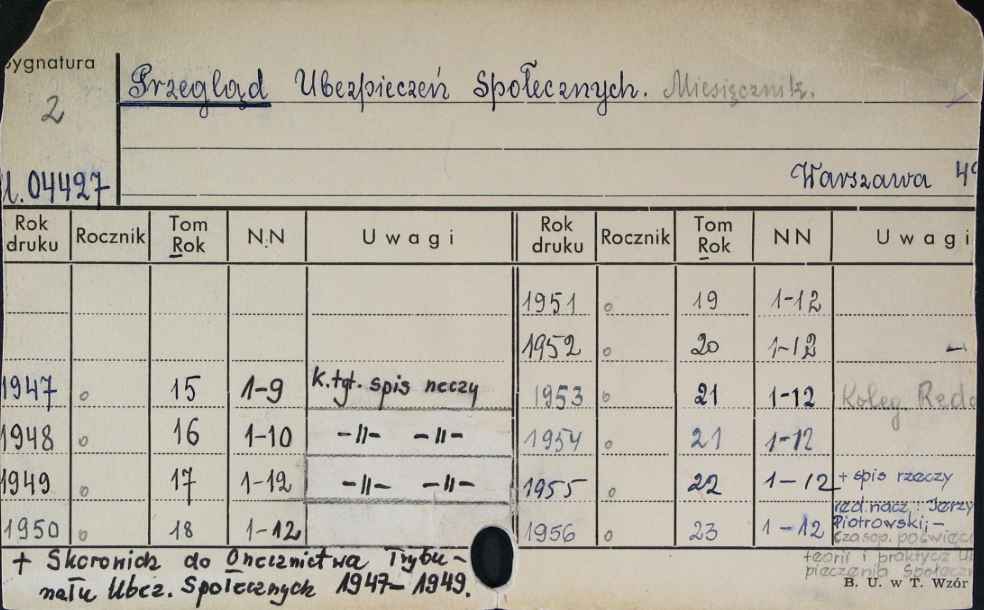 Sygnatura
Przegląd Ubezpieczeń Społecznych. Miesięcznik.
2
04427
Warszawa
Rok druku Rocznik Tom Rok N.N Uwagi Rok druku Rocznik Tom Rok NN Uwagi
1951 o 19 1-12
1952 o 20 1-12 -
1947 o 15 1-9 K.tyt. spis rzeczy 1953 o 21 1-12 Koleg
1948 o 16 1-10 -II- -II- 1954 o 21 1-12
1949 o 17 1-12 -II- -II- 1955 o 22 1-12 + spis rzeczy
1950 o 18 1-12 1956 o 23 1-12 red. nacz.: Jerzy
Piotrowski; -
czasop. poświęc
+ Skorowidz do Orzecznictwa Trybu-
teorii i praktyce
nału Ubez. Społecznych 1947-1949.
pieczenia Społeczn
B. U. w T. Wzór